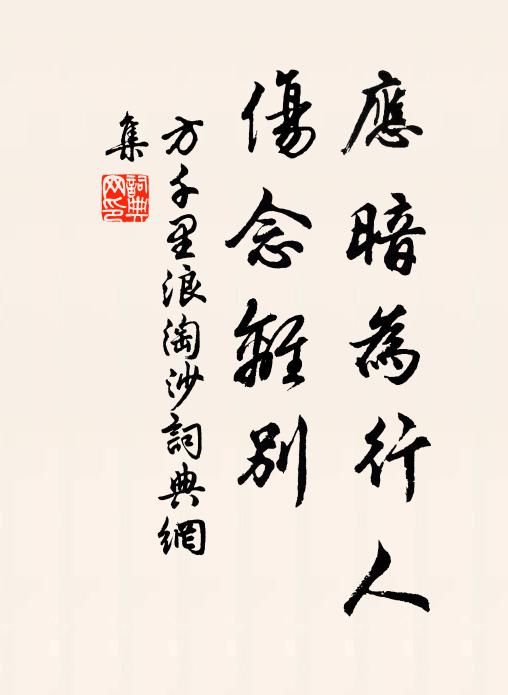 應暗為行人
傷念離別
方千里浪淘沙詞典網
集
詞典網印